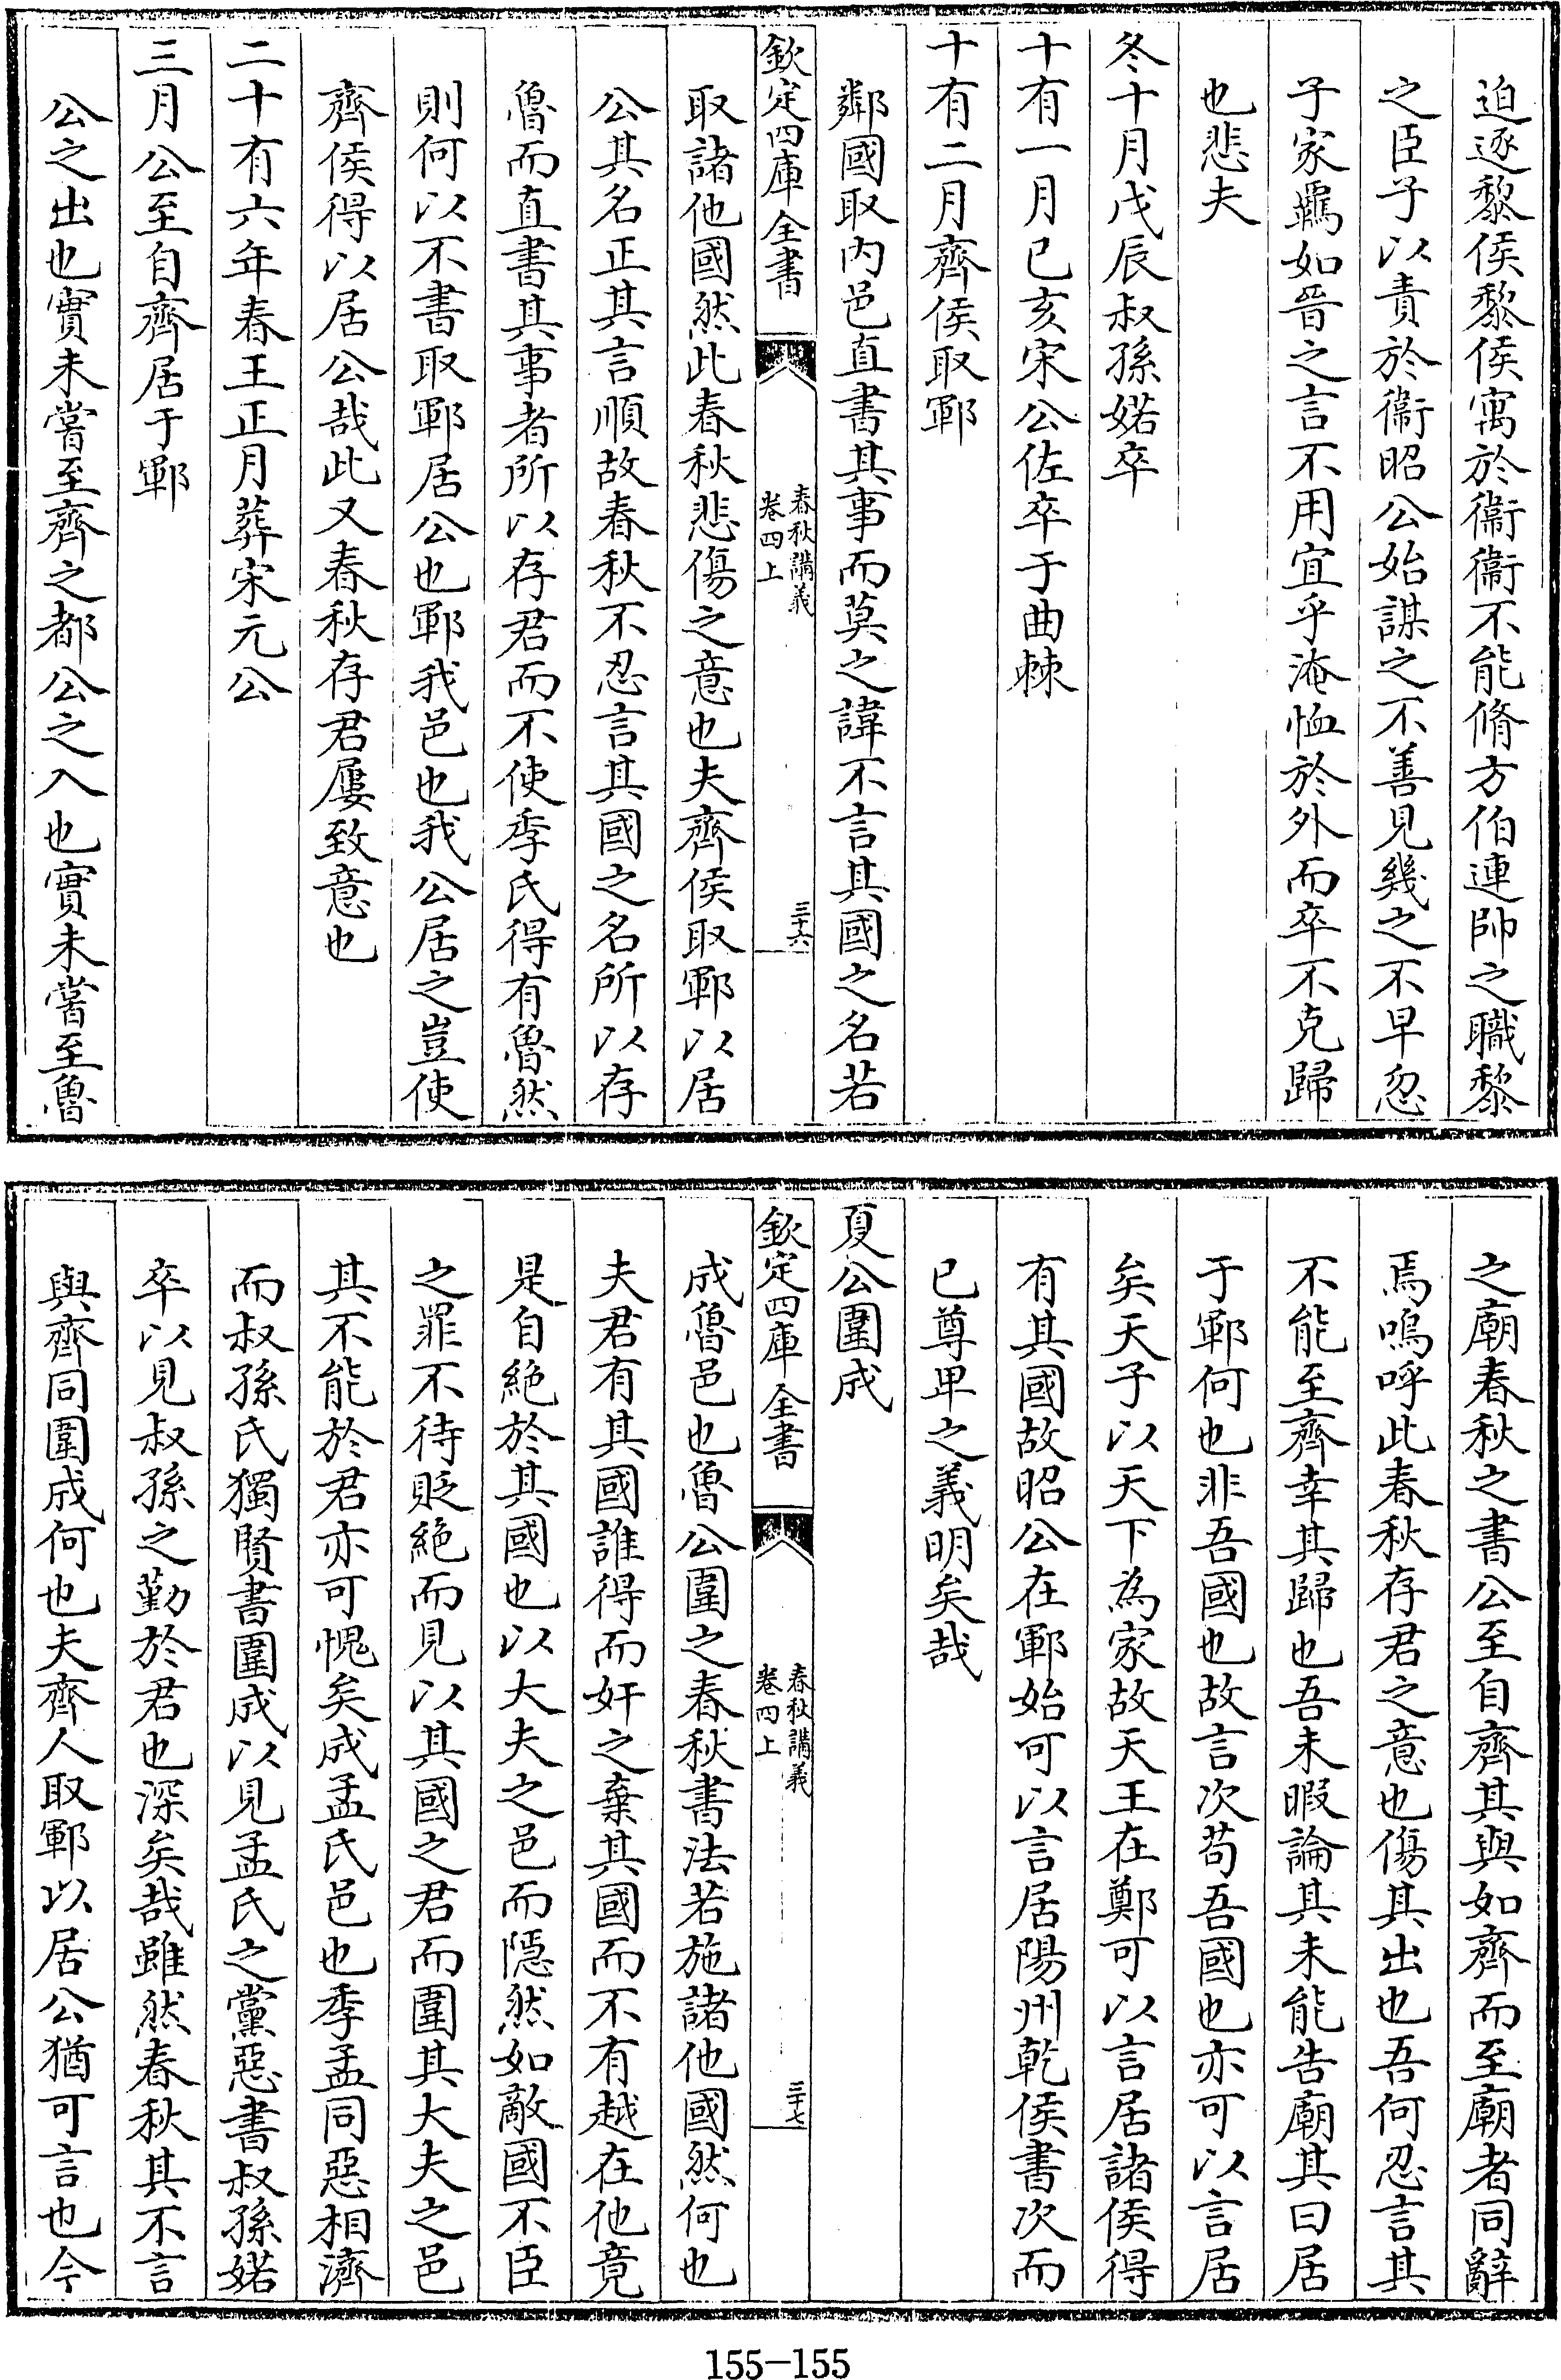 迫逐黎侯黎侯寓於衞衞不能脩方伯連帥之職黎
之臣子以責於衞昭公始謀之不善見幾之不早忽
子家羈如晉之言不用宜乎淹恤於外而卒不克歸
也悲夫
冬十月戊辰叔孫婼卒
十有一月已亥宋公佐卒于曲棘
十有二月齊侯取鄆
鄰國取内邑直書其事而莫之諱不言其國之名若
欽定四庫全書
春秋講義
卷四上
三十六
取諸他國然此春秋悲傷之意也夫齊侯取鄆以居
公其名正其言順故春秋不忍言其國之名所以存
魯而直書其事者所以存君而不使季氏得有魯然
則何以不書取鄆居公也鄆我邑也我公居之豈使
齊侯得以居公哉此又春秋存君屢致意也
二十有六年春王正月葬宋元公
三月公至自齊居于鄆
公之出也實未嘗至齊之都公之入也實未嘗至魯
之廟春秋之書公至自齊其與如齊而至廟者同辭
焉嗚呼此春秋存君之意也傷其出也吾何忍言其
不能至齊幸其歸也吾未暇論其未能告廟其曰居
于鄆何也非吾國也故言次苟吾國也亦可以言居
矣天子以天下為家故天王在鄭可以言居諸侯得
有其國故昭公在鄆始可以言居陽州乾侯書次而
已尊卑之義明矣哉
夏公圍成
欽定四庫全書
春秋講義
卷四上
三十七
成魯邑也魯公圍之春秋書法若施諸他國然何也
夫君有其國誰得而奸之棄其國而不有越在他竟
是自絶於其國也以大夫之邑而隱然如敵國不臣
之罪不待貶絶而見以其國之君而圍其大夫之邑
其不能於君亦可愧矣成孟氏邑也季孟同惡相濟
而叔孫氏獨賢書圍成以見孟氏之黨惡書叔孫婼
卒以見叔孫之勤於君也深矣哉雖然春秋其不言
與齊同圍成何也夫齊人取鄆以居公猶可言也今
155-155